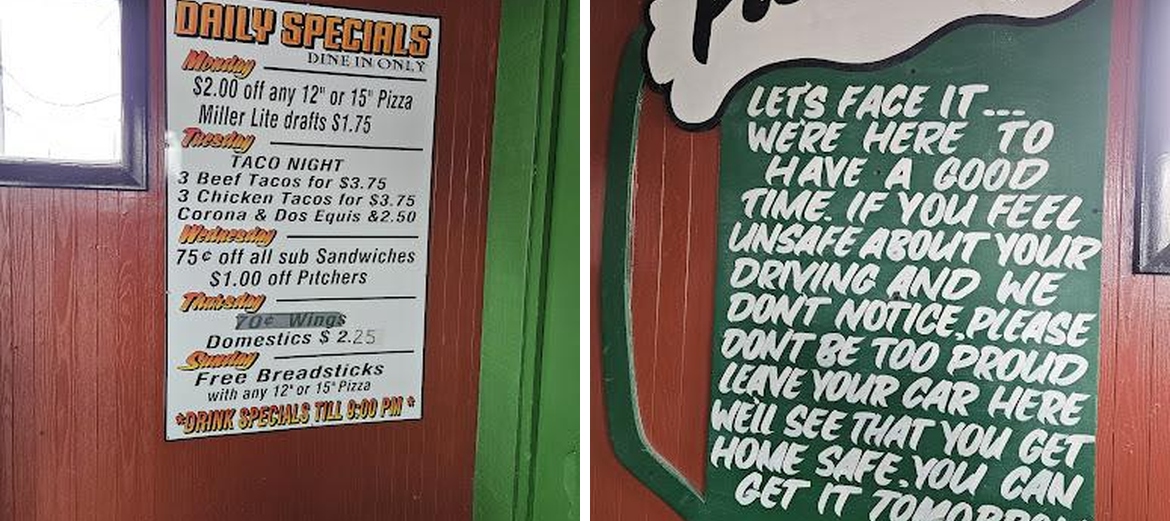 DAILY SPECIALS
DINE IN ONLY
Monday
$2.00 off any 12" or 15" Pizza
Miller Lite drafts $1.75
Tuesday
TACO NIGHT
3 Beef Tacos for $3.75
3 Chicken Tacos for $3.75
Corona & Dos Equis &2.50
Wednesday
75¢ off all sub Sandwiches
$1.00 off Pitchers
Thursday
70¢ Wings
Domestics $ 2.25
Sunday
Free Breadsticks
with any 12" or 15" Pizza
*DRINK SPECIALS TILL 9:00 PM *
LET'S FACE IT...
WE'RE HERE TO
HAVE A GOOD
TIME. IF YOU FEEL
UNSAFE ABOUT YOUR
DRIVING AND WE
DON'T NOTICE, PLEASE
DON'T BE TOO PROUD
LEAVE YOUR CAR HERE
WE'LL SEE THAT YOU GET
HOME SAFE. YOU CAN
GET IT TOMORROW